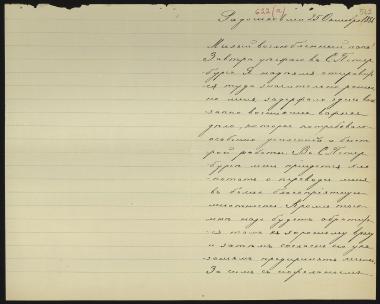 622(а)
Радошковичи 25 Октября 1881
Милый возлюбленный папа!
Завтра уезжаю в С. Петер
бург. Я надеялся отправить
ся туда значительно раньше
но меня задержало одно вне
запно возникшее важное
дело, которое потребовало
особенно усиленной и быст
рой работы. В С. Петер
бурге мне придется хло
потать о переводе меня
в более благоприятную
местность. Кроме того
мне надо будет обратить
ся там к хорошему врачу
и затем согласно его ука
заниям предпринять лечение.
За сим с пожеланием